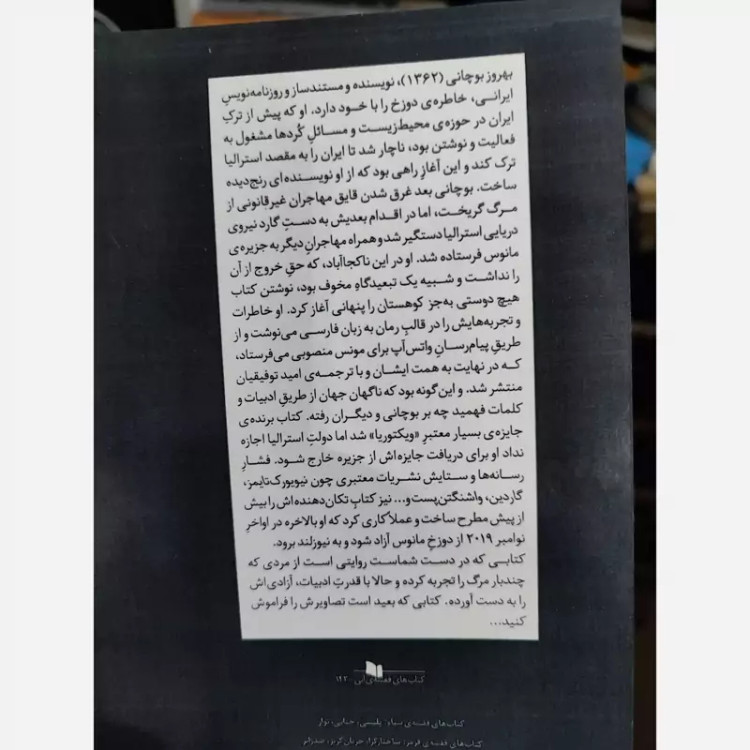 بهروز بوچانی (۱۳۶۲)، نویسنده و مستندساز و روزنامه‌نویسِ
ایرانی، خاطره‌ی دوزخ را با خود دارد. او که پیش از ترکِ
ایران در حوزه‌ی محیط‌زیست و مسائلِ کُردها مشغول به
فعالیت و نوشتن بود، ناچار شد تا ایران را به مقصد استرالیا
ترک کند و این آغازِ راهی بود که از او نویسنده‌ای رنج‌دیده
ساخت. بوچانی بعد غرق شدن قایق مهاجران غیرقانونی از
مرگ گریخت، اما در اقدام بعدیش به دستِ گارد نیروی
دریایی استرالیا دستگیر شد و همراه مهاجرانِ دیگر به جزیره‌ی
مانوس فرستاده شد. او در این ناکجاآباد، که حقِ خروج از آن
را نداشت و شبیه یک تبعیدگاهِ مخوف بود، نوشتن کتاب
هیچ دوستی به‌جز کوهستان را پنهانی آغاز کرد. او خاطرات
و تجربه‌هایش را در قالبِ رمان به زبان فارسی می‌نوشت و از
طریقِ پیام‌رسانِ واتس‌آپ برای مونس منصوبی می‌فرستاد،
که در نهایت به همت ایشان و با ترجمه‌ی امید توفیقیان
منتشر شد. و این‌گونه بود که ناگهان جهان از طریقِ ادبیات و
کلمات فهمید چه بر بوچانی و دیگران رفته. کتاب برنده‌ی
جایزه‌ی بسیار معتبرِ «ویکتوریا» شد اما دولتِ استرالیا اجازه
نداد او برای دریافت جایزه‌اش از جزیره خارج شود. فشارِ
رسانه‌ها و ستایش نشریات معتبری چون نیویورک‌تایمز،
گاردین، واشنگتن‌پست و... نیز کتابِ تکان‌دهنده‌اش را بیش
از پیش مطرح ساخت و عملاً کاری کرد که او بالاخره در اواخرِ
نوامبر ۲۰۱۹ از دوزخِ مانوس آزاد شود و به نیوزلند برود.
کتابی که در دست شماست روایتی است از مردی که
چندبار مرگ را تجربه کرده و حالا با قدرتِ ادبیات، آزادی‌اش
را به دست آورده. کتابی که بعید است تصاویرش را فراموش
کنید...
کتاب‌های قفسه‌ی آبی - ۱۴۲
کتاب‌های قفسه‌ی سیاه: پلیسی، جنایی، نوار
کتاب‌های قفسه‌ی قرمز: ساختارگرا، جریان‌گریز، ضدژانر